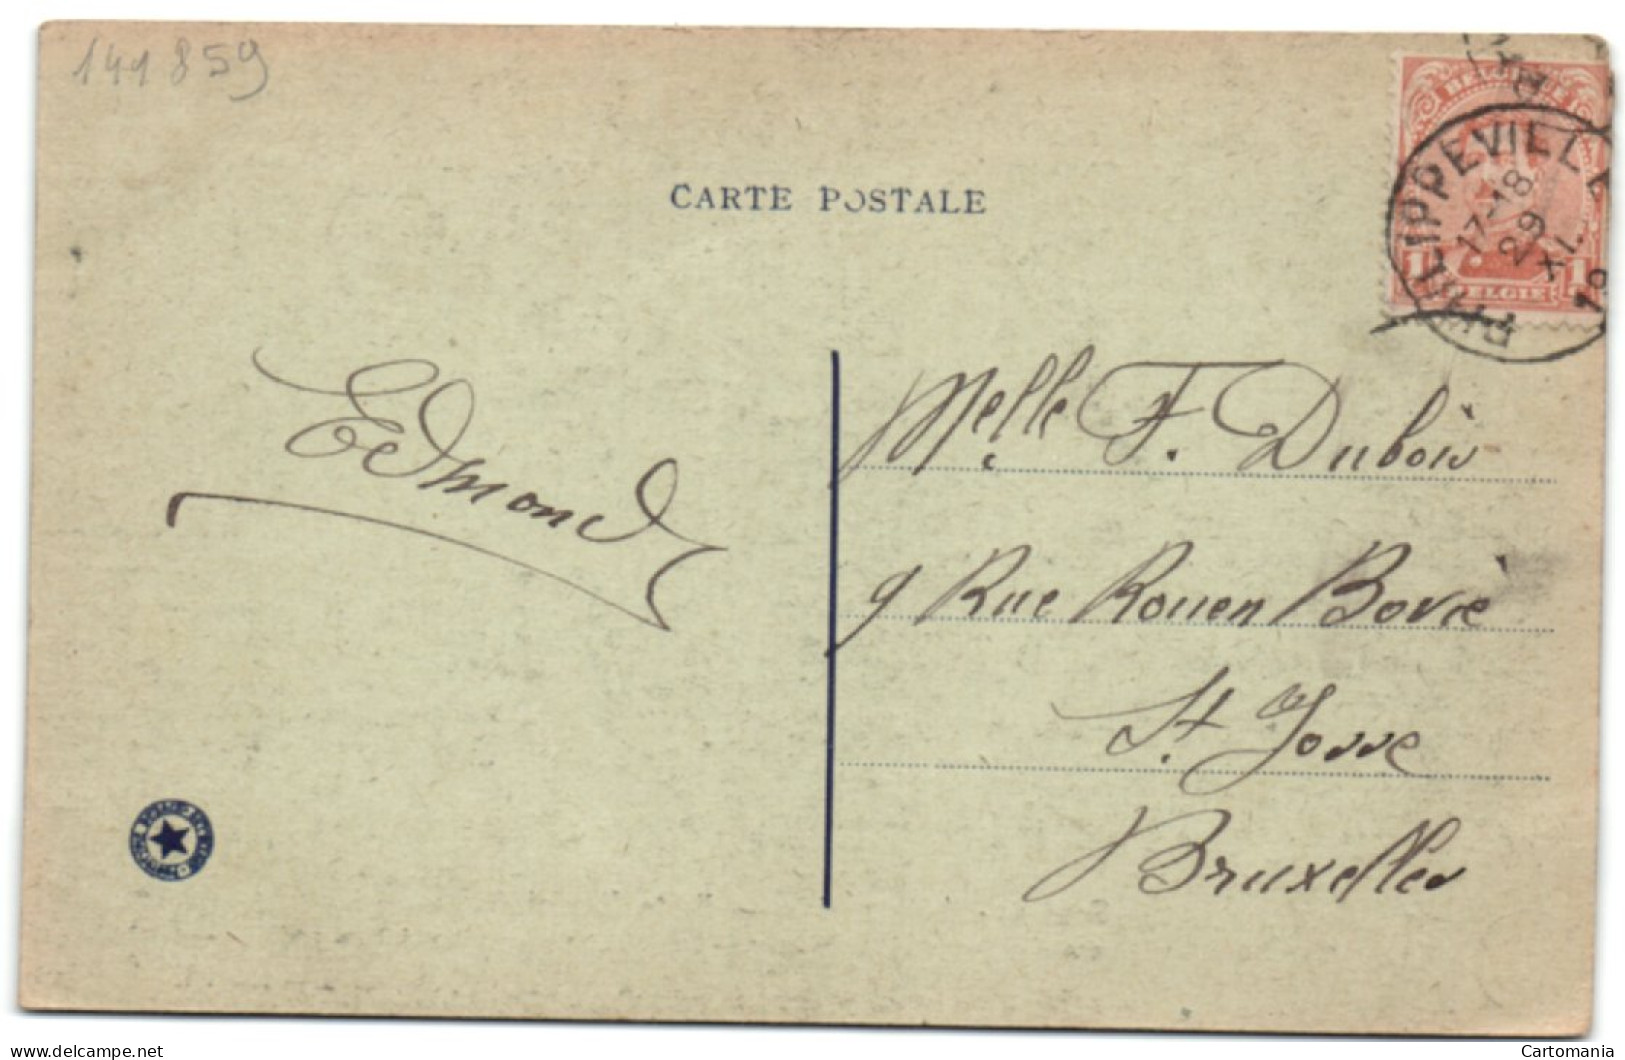 141859
CARTE POSTALE
BELGIQUE
PHILIPPEVILLE
17-18
29
XI
19
1 1
BELGIE
Edmond
Melle F. Dubois
9 Rue Rouen Bovié
St. Josse
Bruxelles
www.delcampe.net
Cartomania